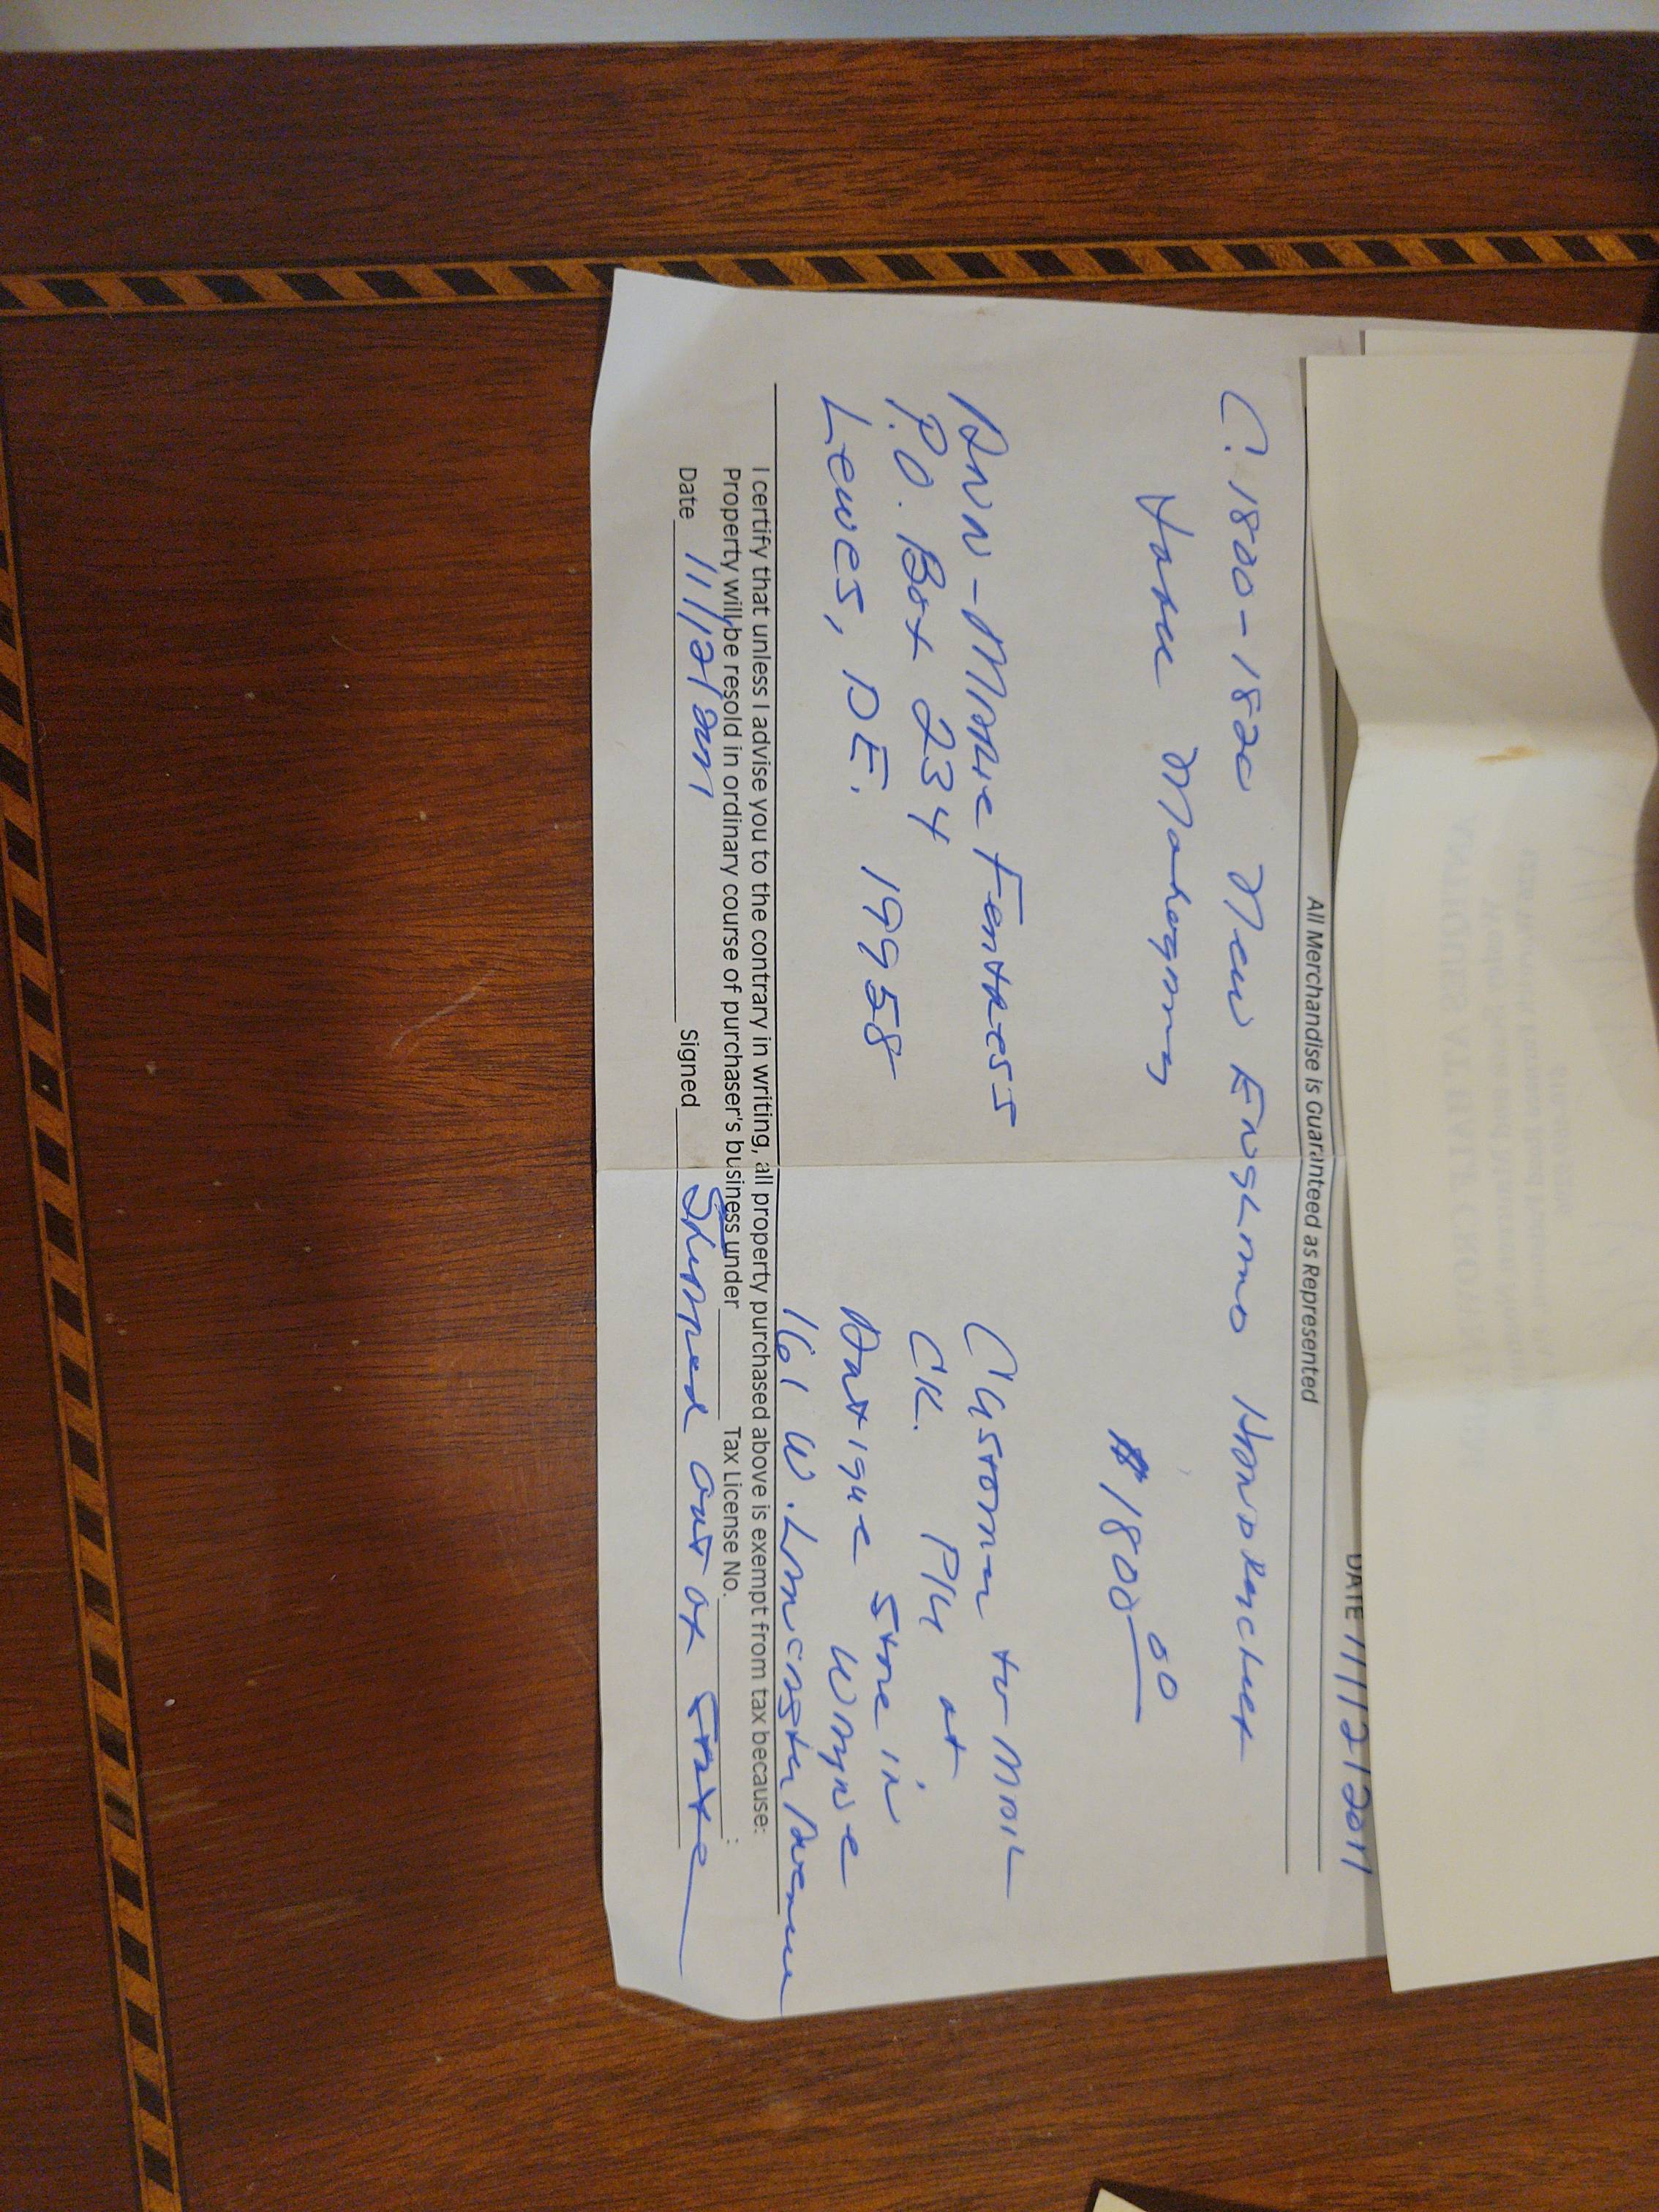 DATE 11/12/2011
All Merchandise is Guaranteed as Represented
C. 1800-1820 New England Hon
Mahogany
$1800.00
Ann-Marie Fentress
P.O. Box 234
Lewes, DE. 19958
Customer to mail
CK. P/U at
Antique Store in
Wayne
161 W. Lancaster Avenue
I certify that unless I advise you to the contrary in writing, all property purchased above is exempt from tax because:
Property will be resold in ordinary course of purchaser's business under Tax License No. :
Date 11/12/2011 Signed Shipped out of State